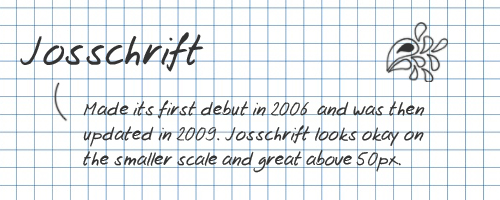 Josschrift
Made its first debut in 2006 and was then
updated in 2009. Josschrift looks okay on
the smaller scale and great above 50px.